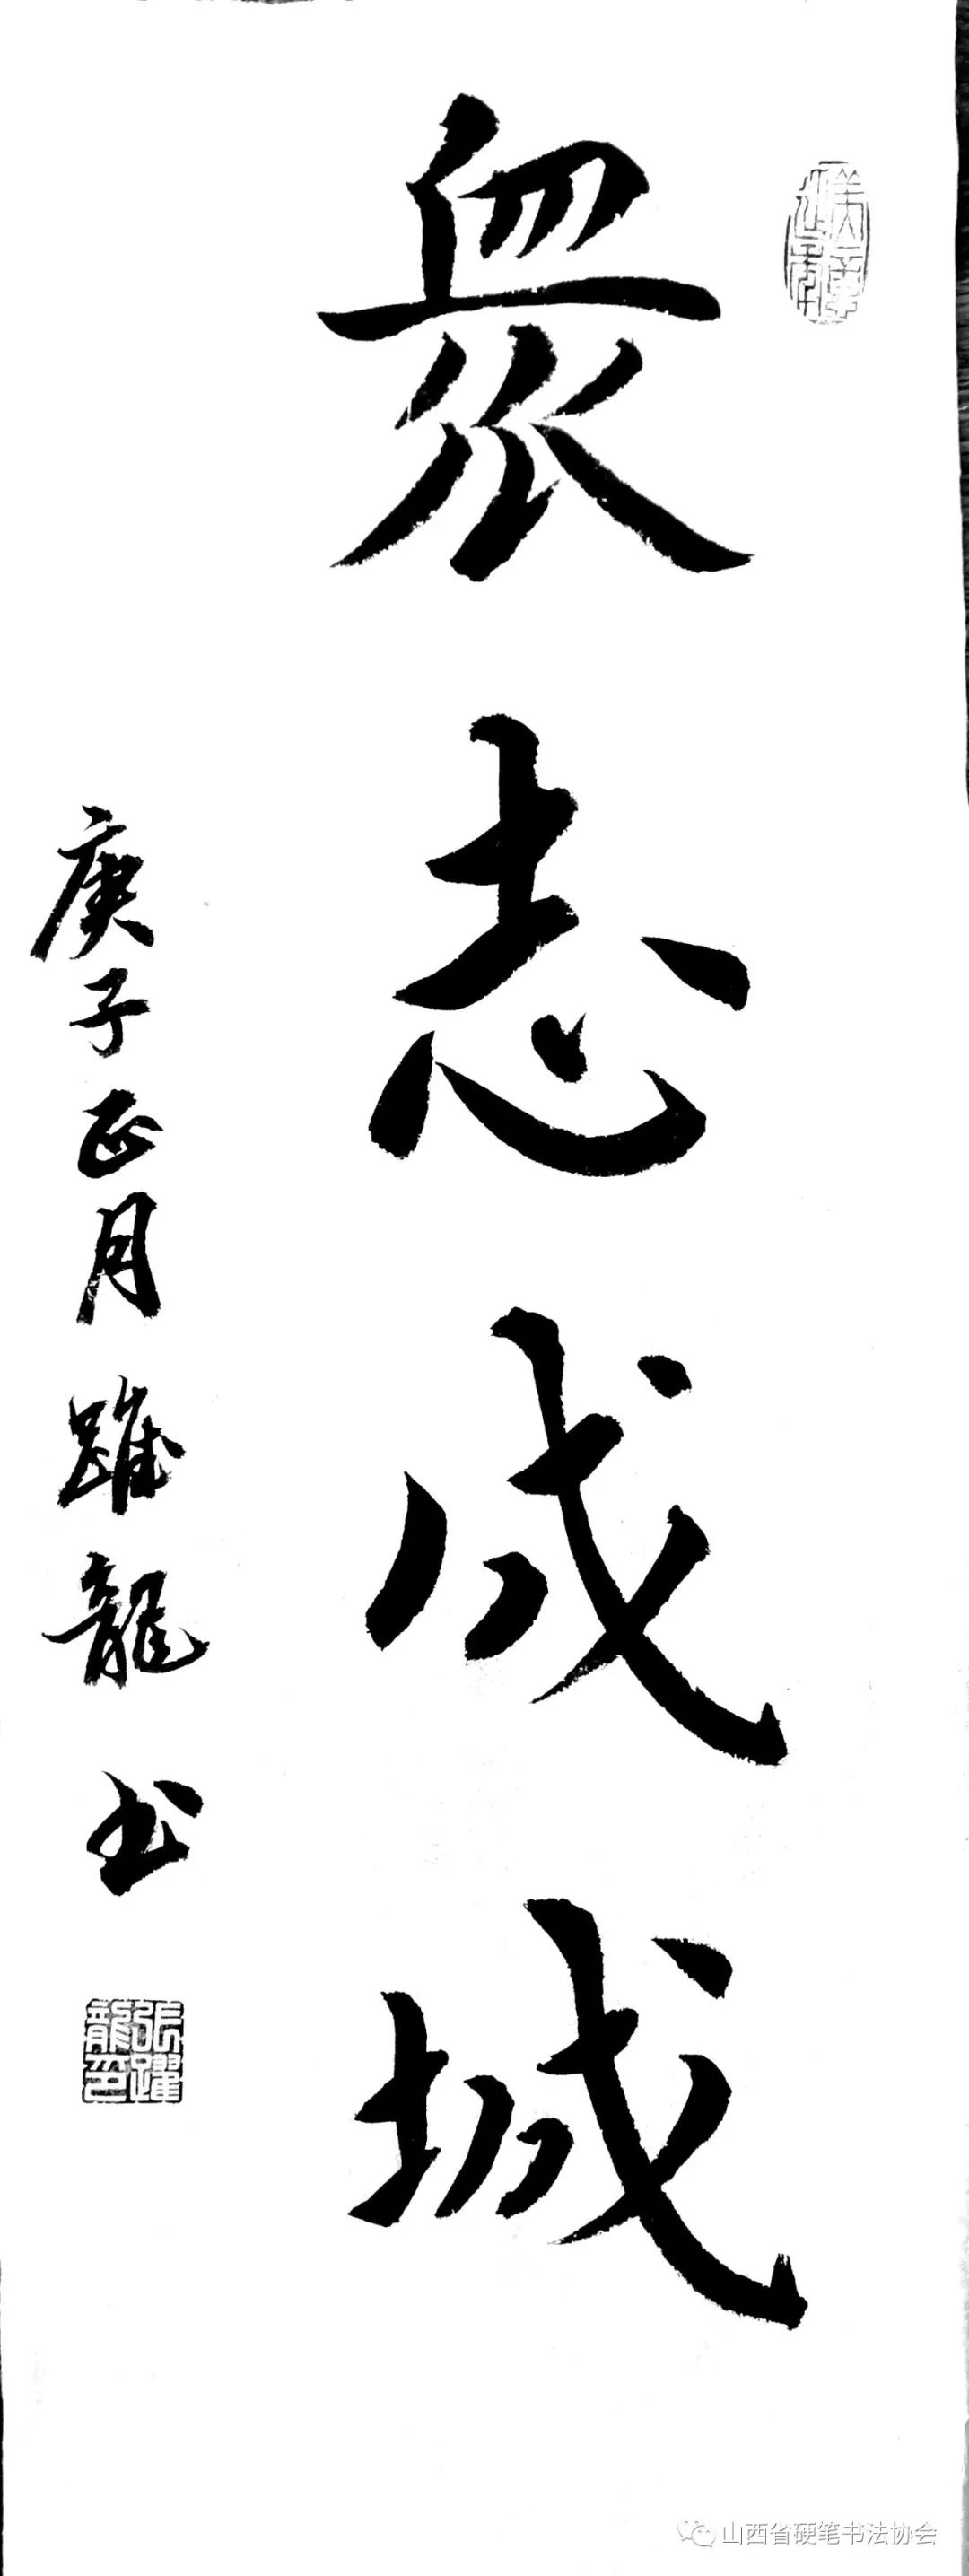 衆志成城
庚子正月躍龍书
張躍龍印
山西省硬笔书法协会